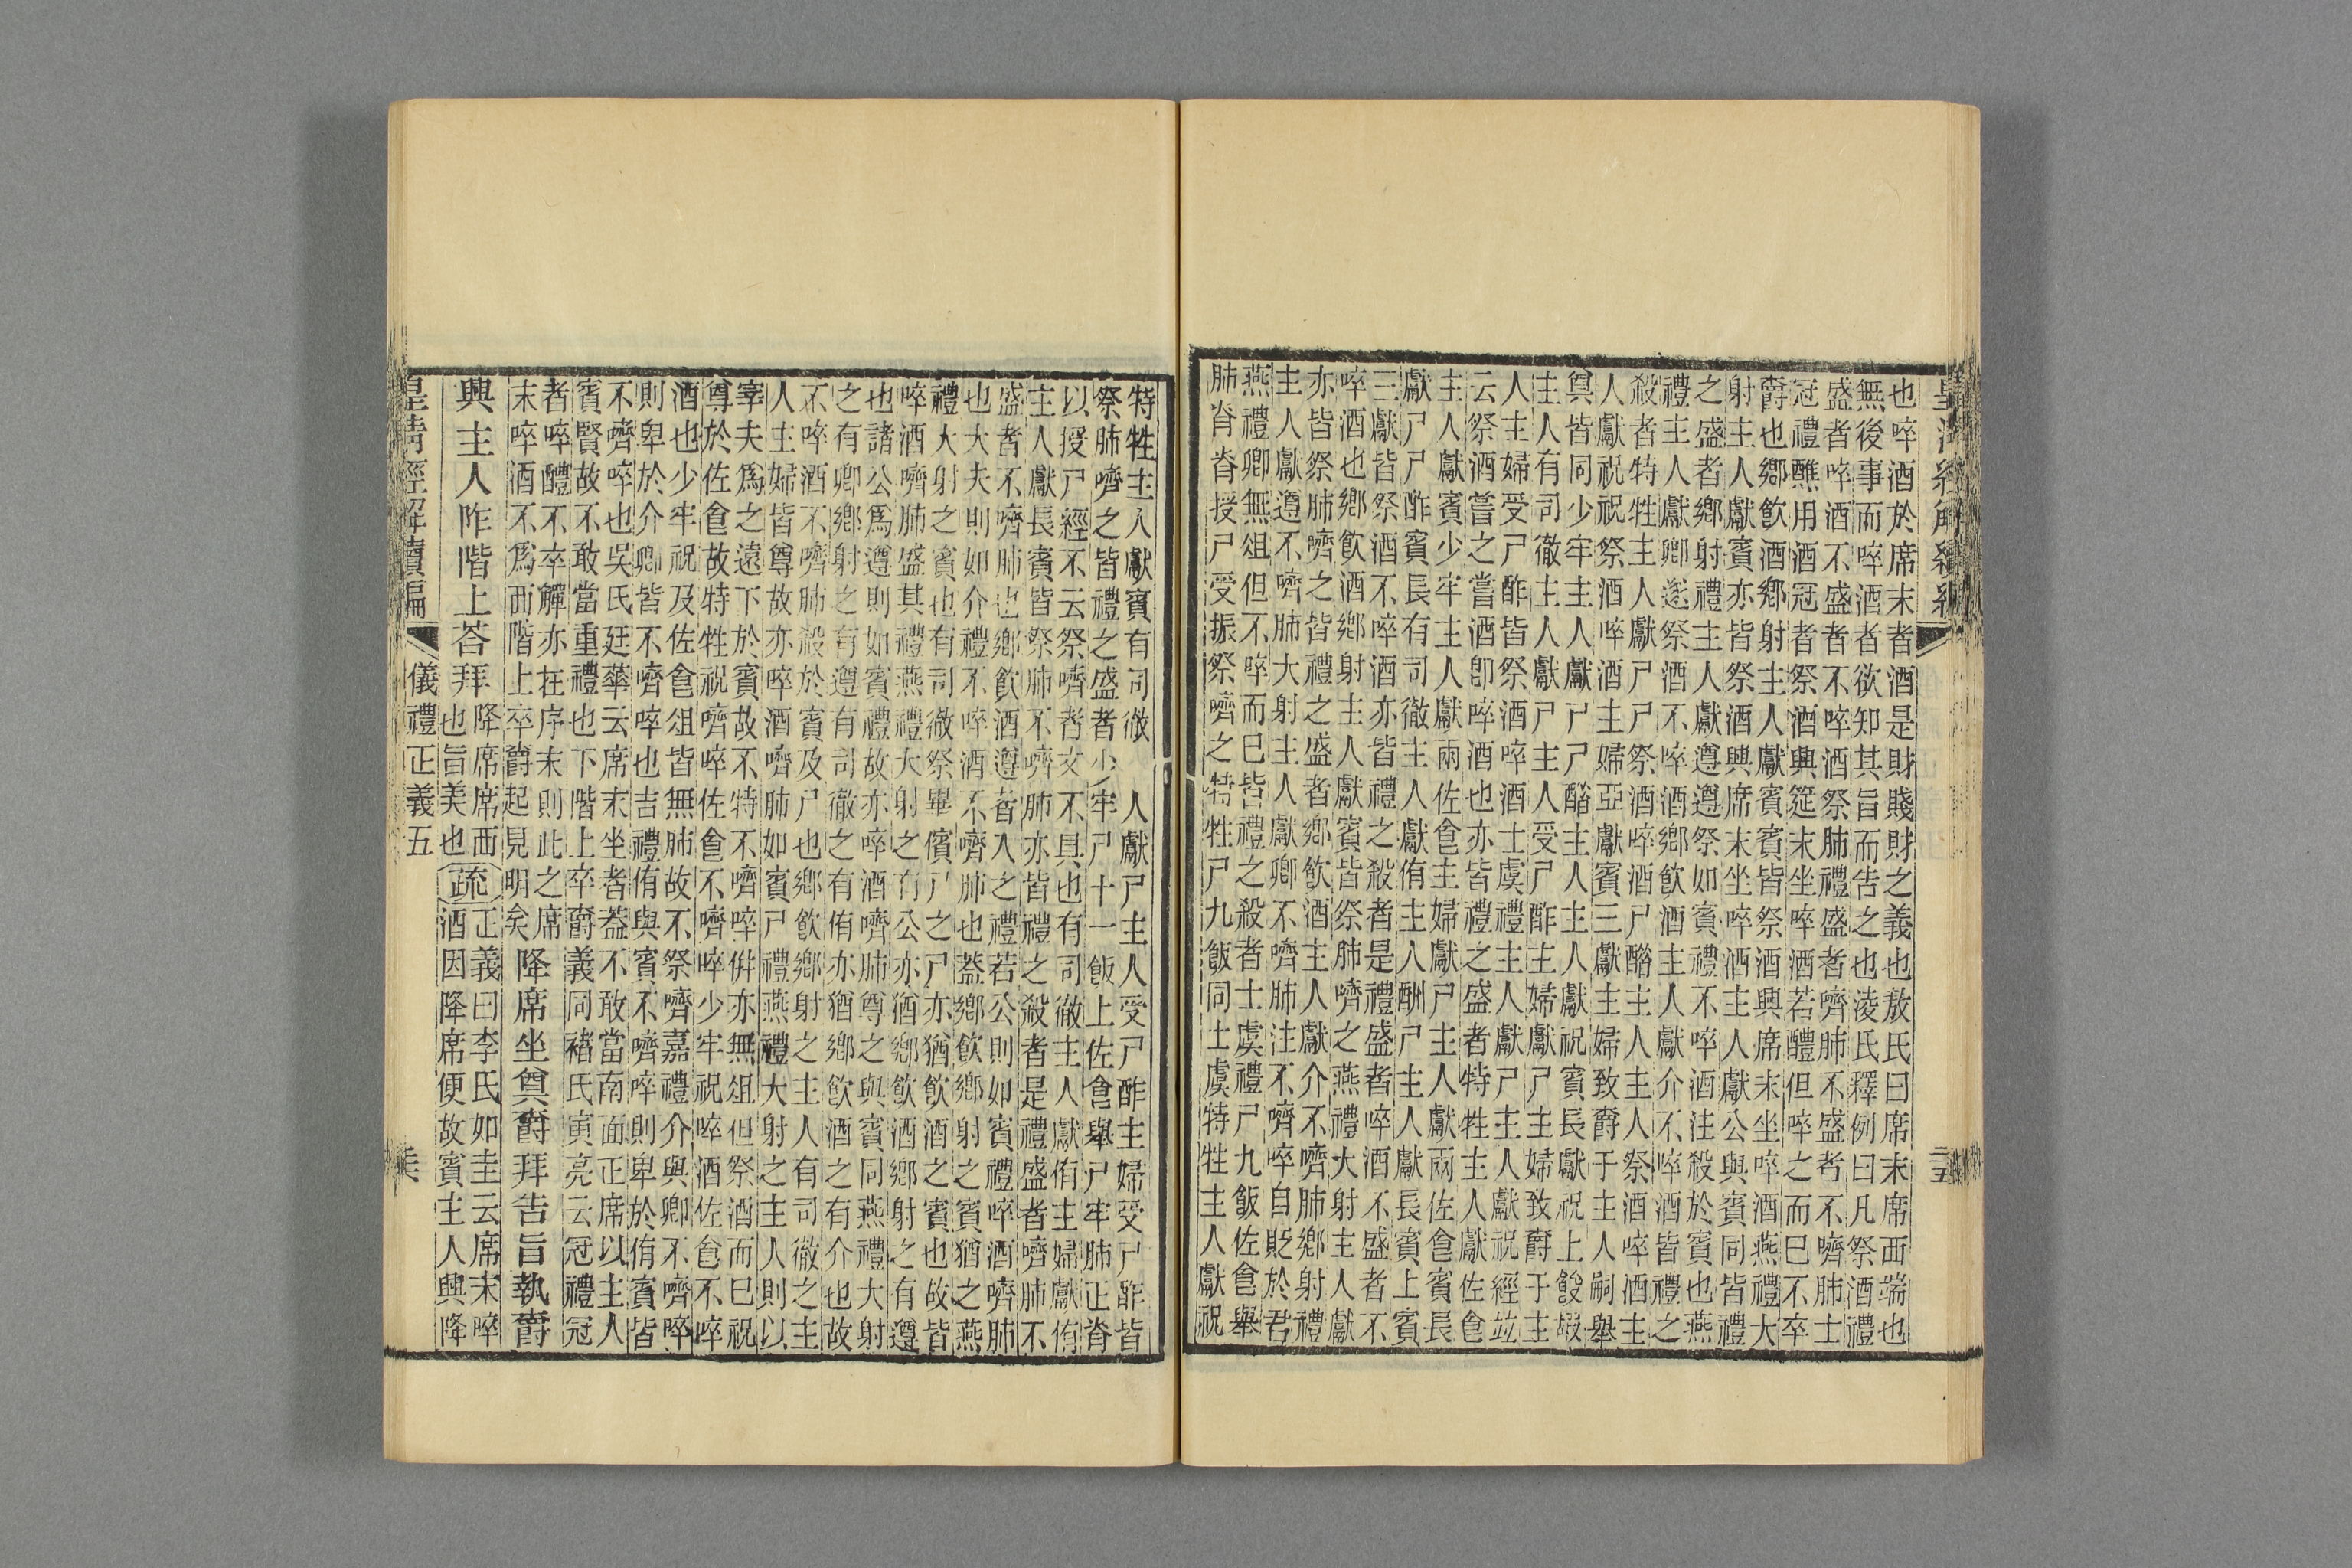 皇清經解續編
也啐酒於席末者酒是財賤財之義也敖氏曰席末席西端也
無後事而啐酒者欲知其旨而告之也淩氏釋例曰凡祭酒禮
盛者啐酒不盛者不啐酒祭肺禮盛者嚌肺不盛者不嚌肺士
冠禮醮用酒冠者祭酒興筵末坐啐酒若醴但啐之而已不卒
爵也鄉飲酒鄉射主人獻賓賓皆祭酒興席末坐啐酒燕禮大
射主人獻賓亦皆祭酒興席末坐啐酒主人獻公與賓同皆禮
之盛者鄉射禮主人獻遵遵祭如賓禮不啐酒注殺於賓也燕
禮主人獻卿遂祭酒不啐酒鄉飲酒主人獻介不啐酒皆禮之
殺者特牲主人獻尸尸祭酒啐酒尸酳主人主人祭酒啐酒主
人獻祝祝祭酒啐酒主婦亞獻賓三獻主婦致爵于主人嗣舉
奠皆同少牢主人獻尸尸醋主人主人獻祝賓長獻祝上餕嘏
主人有司徹主人獻尸主人受尸酢主婦獻尸主婦致爵于主
人主婦受尸酢皆祭酒啐酒士虞禮主人獻尸主人獻祝經竝
云祭酒嘗之嘗酒卽啐酒也亦皆禮之盛者特牲主人獻佐食
主人獻賓少牢主人獻兩佐食主婦獻尸主人獻兩佐食賓長
獻尸尸酢賓長有司徹主人獻侑主人酬尸主人獻長賓上賓
三獻皆祭酒不啐酒亦皆禮之殺者是禮盛者啐酒不盛者不
啐酒也鄉飲酒鄉射主人獻賓皆祭肺嚌之燕禮大射主人獻
亦皆祭肺嚌之皆禮之盛者鄉飲酒主人獻介不嚌肺鄉射禮
主人獻遵不嚌肺大射主人獻卿不嚌肺注不嚌啐自貶於君
燕禮卿無俎但不啐而已皆禮之殺者士虞禮尸九飯佐食舉
肺脊授尸受振祭嚌之特牲尸九飯同士虞特牲主人獻祝
特牲主人獻賓有司徹 人獻尸主人受尸酢主婦受尸酢皆
祭肺嚌之皆禮之盛者少牢尸十一飯上佐食舉尸牢肺正脊
以授尸經不云祭嚌者文不具也有司徹主人獻侑主婦獻侑
主人獻長賓皆祭肺不嚌肺亦皆禮之殺者是禮盛者嚌肺不
盛者不嚌肺也鄉飲酒遵者入之禮若公則如賓禮啐酒嚌肺
也大夫則如介禮不啐酒不嚌肺也葢鄉飲鄉射之賓猶之燕
禮大射之賓也有司徹祭畢儐尸之尸亦猶飲酒之賓也故皆
啐酒嚌肺盛其禮燕禮大射之有公亦猶鄉飲酒鄉射之有遵
也諸公爲遵則如賓禮故亦啐酒嚌肺尊之與賓同燕禮大射
之有卿鄉射之有遵有司徹之有侑亦猶鄉飲酒之有介也故
不啐酒不嚌肺殺於賓及尸也鄉飲鄉射之主人有司徹之主
人主婦皆尊故亦啐酒嚌肺如賓尸禮燕禮大射之主人則以
宰夫爲之遠下於賓故不特不嚌啐併亦無俎但祭酒而已祝
尊於佐食故特牲祝嚌啐佐食不嚌啐少牢祝啐酒佐食不啐
酒也少牢祝及佐食俎皆無肺故不祭嚌嘉禮介與卿不嚌啐
則卑於介卿皆不嚌啐也吉禮侑與賓不嚌啐則卑於侑賓皆
不嚌啐也吳氏廷華云席末坐者葢不敢當南面正席以主人
賓賢故不敢當重禮也下階上卒爵義同褚氏寅亮云冠禮冠
者啐醴不卒觶亦在序末則此之席
末啐酒不爲而階上卒爵起見明矣
降席坐奠爵拜告旨執爵
興主人阼階上荅拜
降席席西
也旨美也
疏
正義曰李氏如圭云席末啐
酒因降席便故賓主人興降
皇清經解續編 儀禮正義五